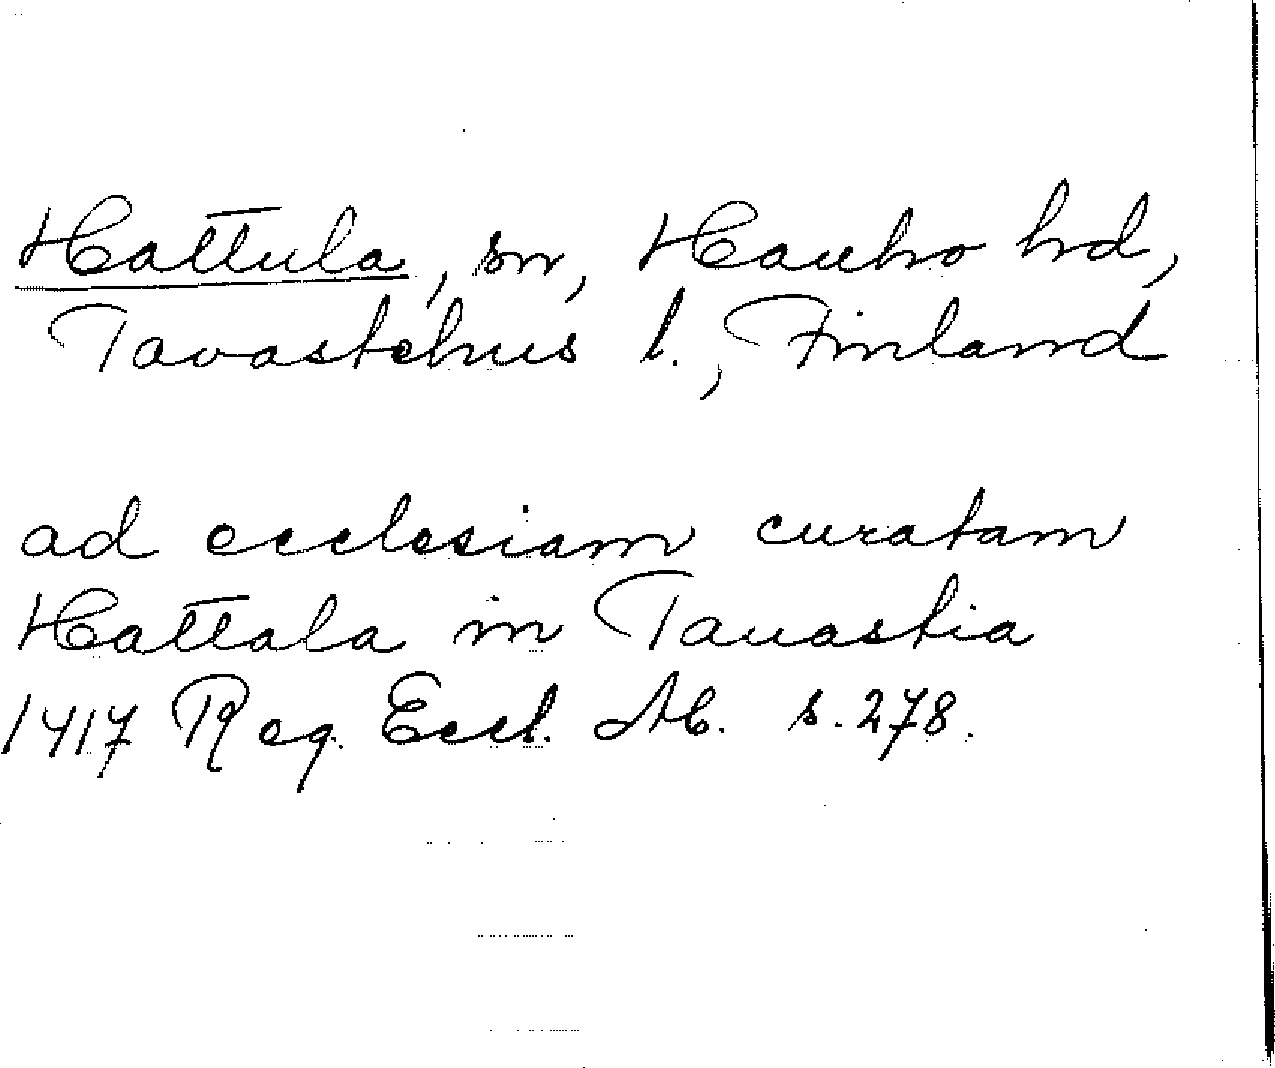 Hattula, sn, Hauho hd,
Tavastehus l., Finland
ad ecclesiam curatam
Hattala in Tauastia
1417 Reg. Eccl. Ab. s. 278.